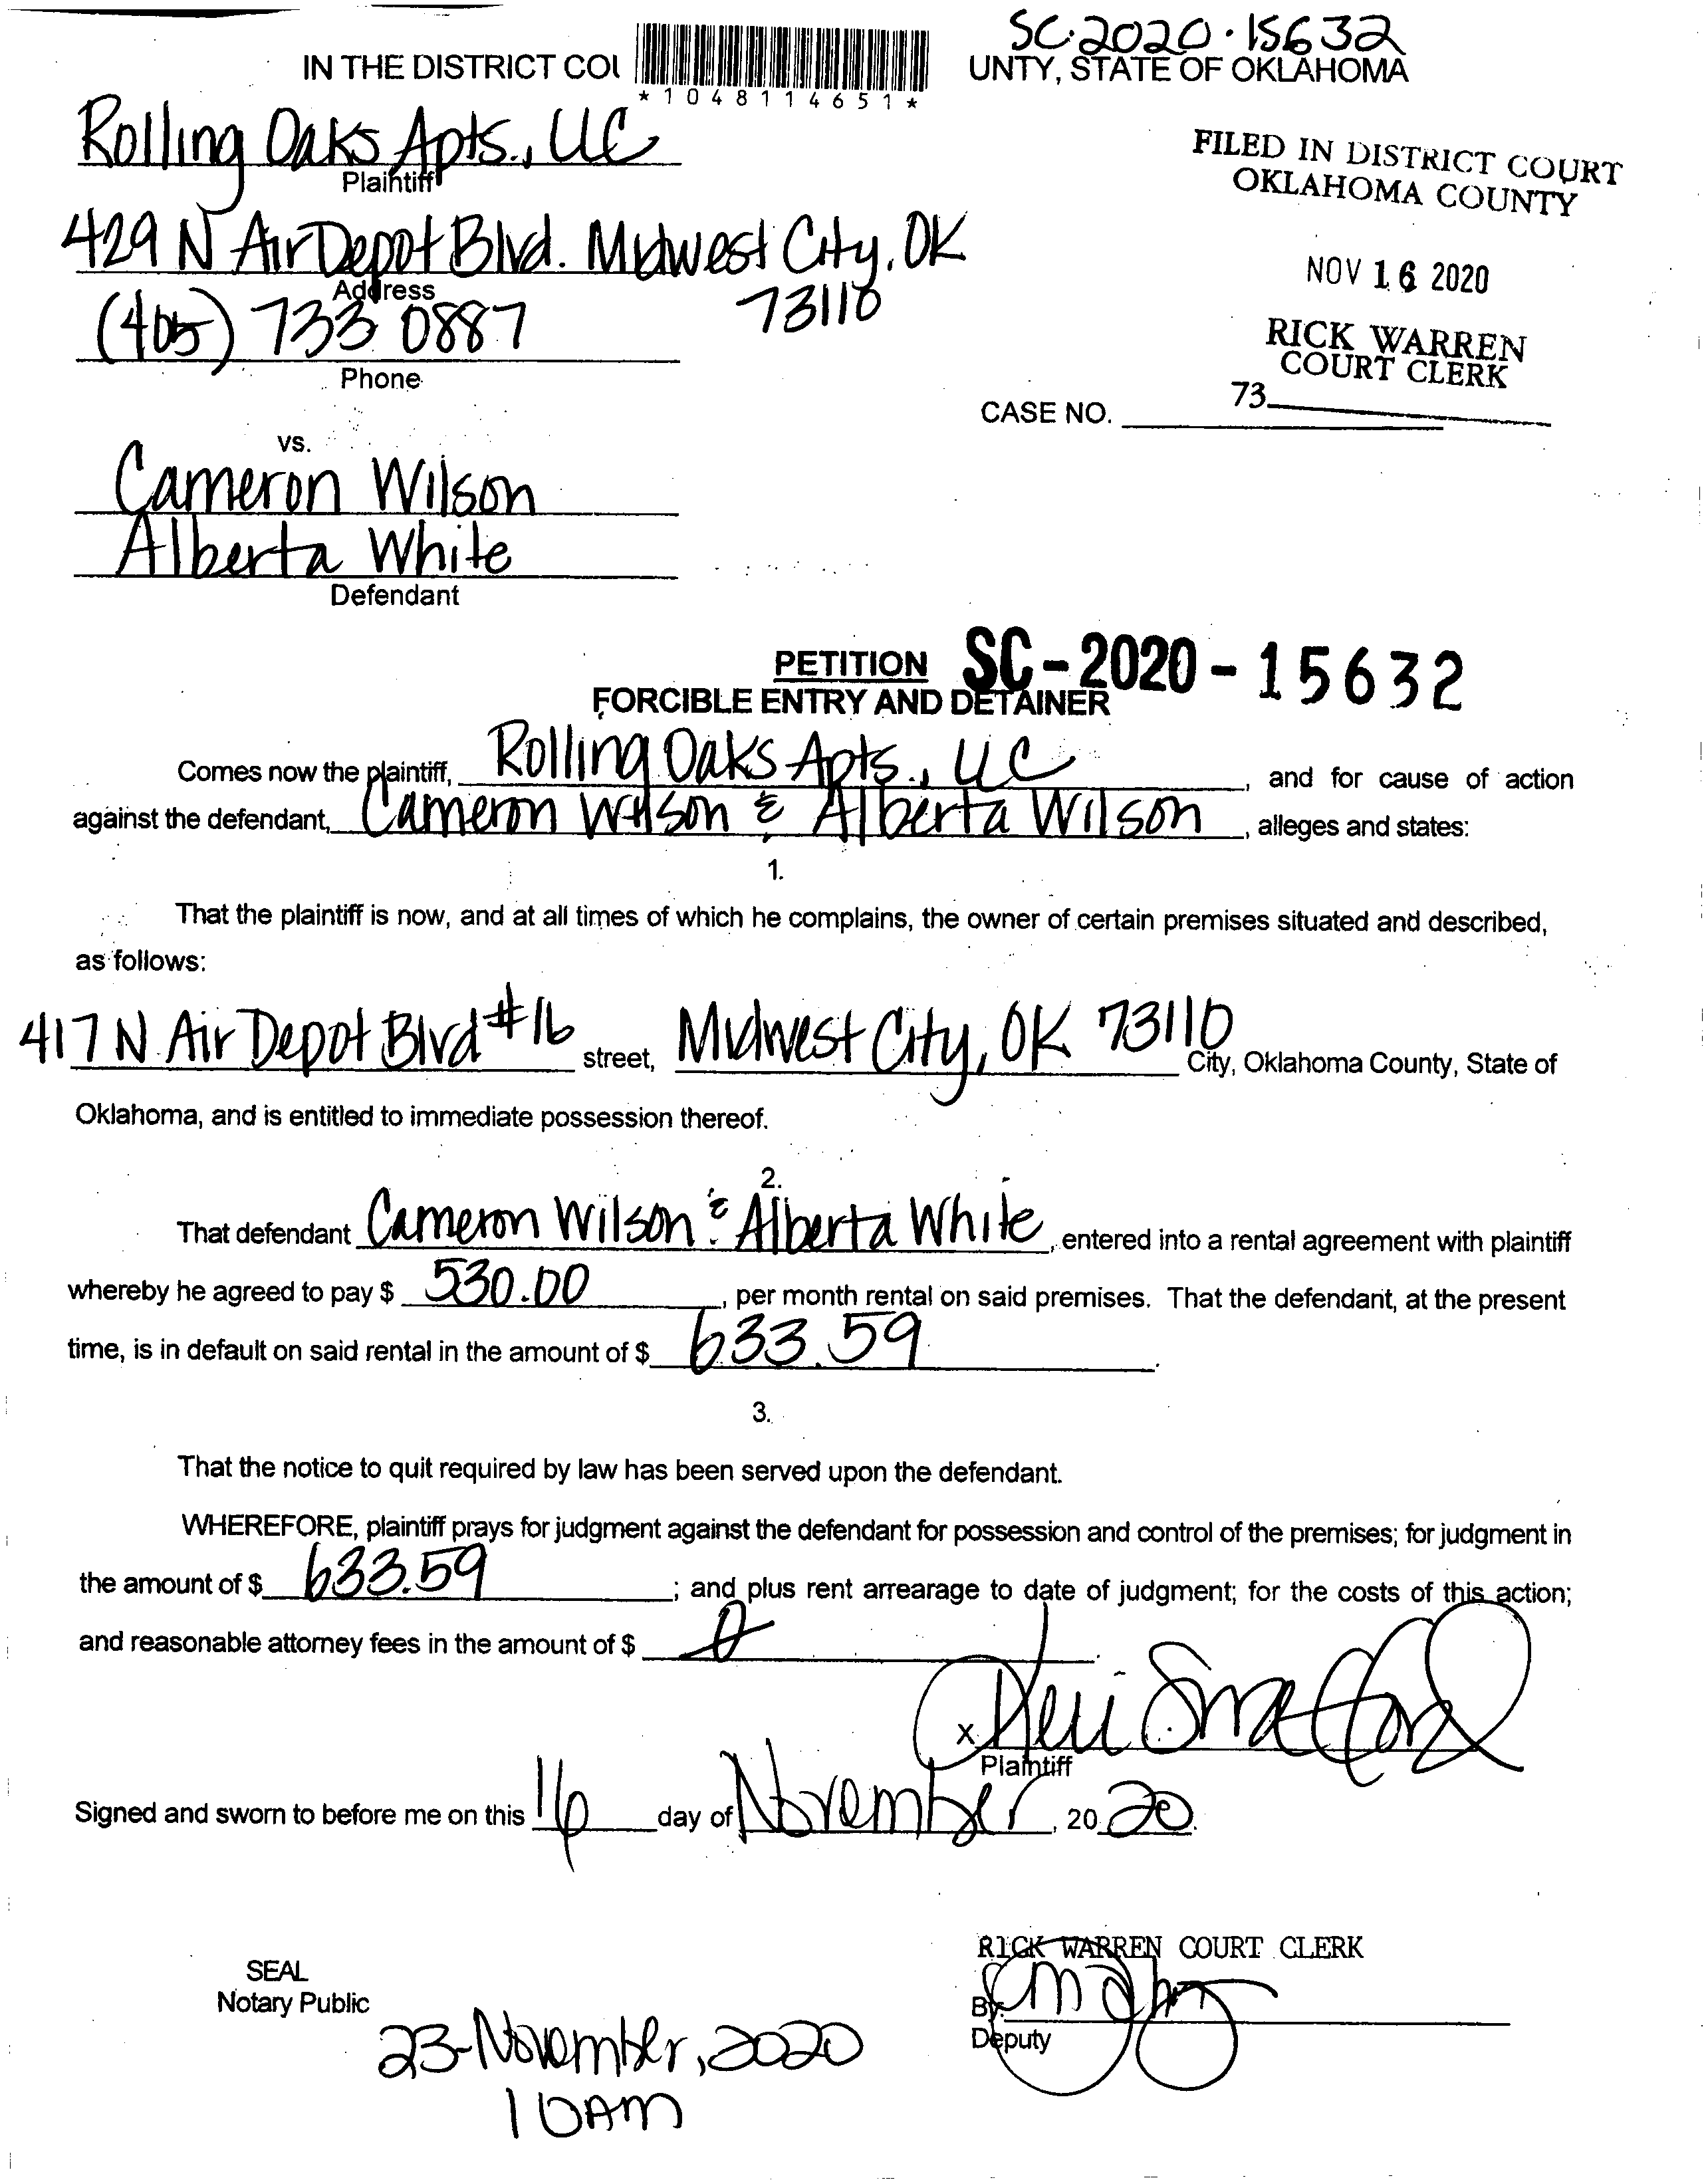 SC-2020-15632
IN THE DISTRICT COU UNTY, STATE OF OKLAHOMA
*1048114651*
Rolling Oaks Apts., LLC
Plaintiff
FILED IN DISTRICT COURT
OKLAHOMA COUNTY
429 N Air Depot Blvd. Midwest City, OK
73110
Address
NOV 16 2020
(405) 733 0887
Phone
RICK WARREN
COURT CLERK
73
CASE NO.
vs.
Cameron Wilson
Alberta White
Defendant
PETITION SC-2020-15632
FORCIBLE ENTRY AND DETAINER
Comes now the plaintiff, Rolling Oaks Apts., LLC, and for cause of action
against the defendant, Cameron Wilson & Alberta Wilson, alleges and states:
1.
That the plaintiff is now, and at all times of which he complains, the owner of certain premises situated and described,
as follows:
417 N Air Depot Blvd #16 street, Midwest City, OK 73110 City, Oklahoma County, State of
Oklahoma, and is entitled to immediate possession thereof.
2.
That defendant Cameron Wilson & Alberta White, entered into a rental agreement with plaintiff
whereby he agreed to pay $ 530.00, per month rental on said premises. That the defendant, at the present
time, is in default on said rental in the amount of $ 633.59.
3.
That the notice to quit required by law has been served upon the defendant.
WHEREFORE, plaintiff prays for judgment against the defendant for possession and control of the premises; for judgment in
the amount of $ 633.59; and plus rent arrearage to date of judgment; for the costs of this action;
and reasonable attorney fees in the amount of $ 0.
x
Plaintiff
Signed and sworn to before me on this 16 day of November, 2020.
RICK WARREN COURT CLERK
SEAL
Notary Public
By:
Deputy
23-November, 2020
10AM